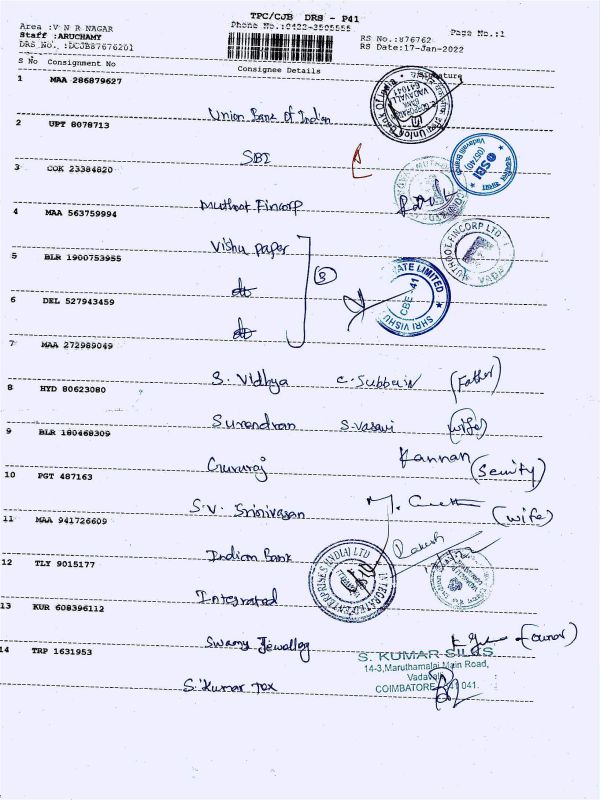 TPC/CJB DRS - P41
Area :V N R NAGAR
Phone No.:0422-3505555
Page No.:1
Staff : ARUCHAMY
RS No.:876762
DRS No. :DCJB87676201
RS Date:17-Jan-2022
S No Consignment No Consignee Details Signature
1 MAA 286879627 Union Bank Of Indian
2 UPT 8078713 SBI
3 COK 23384820 Muthoot Fincorp
4 MAA 563759994 Vishu paper
5 BLR 1900753955 do
6 DEL 527943459 do
3
7 MAA 272989049 S. Vidhya C. Subbain (Father)
8 HYD 80623080 Surendran S. Vasavi (wife)
9 BLR 180468309 Gururaj Kannan (Security)
10 PGT 487163 S.V. Srinivasan (wife)
11 MAA 941726609 Indian Bank Rakesh
12 TLY 9015177 Integrated
13 KUR 608396112 Swamy Jewallog (owner)
14 TRP 1631953 S. Kumar Tex
SBI
(05740)
Vadavalli Branch
MUTHOOT FINCORP LTD
VADA
PRIVATE LIMITED
CBE-41
SHRI VISHU
INTEGRATED ENTERPRISES (INDIA) LTD
S. KUMAR SILKS
14-3,Maruthamalai Main Road,
Vadavalli
COIMBATORE - 641 041.